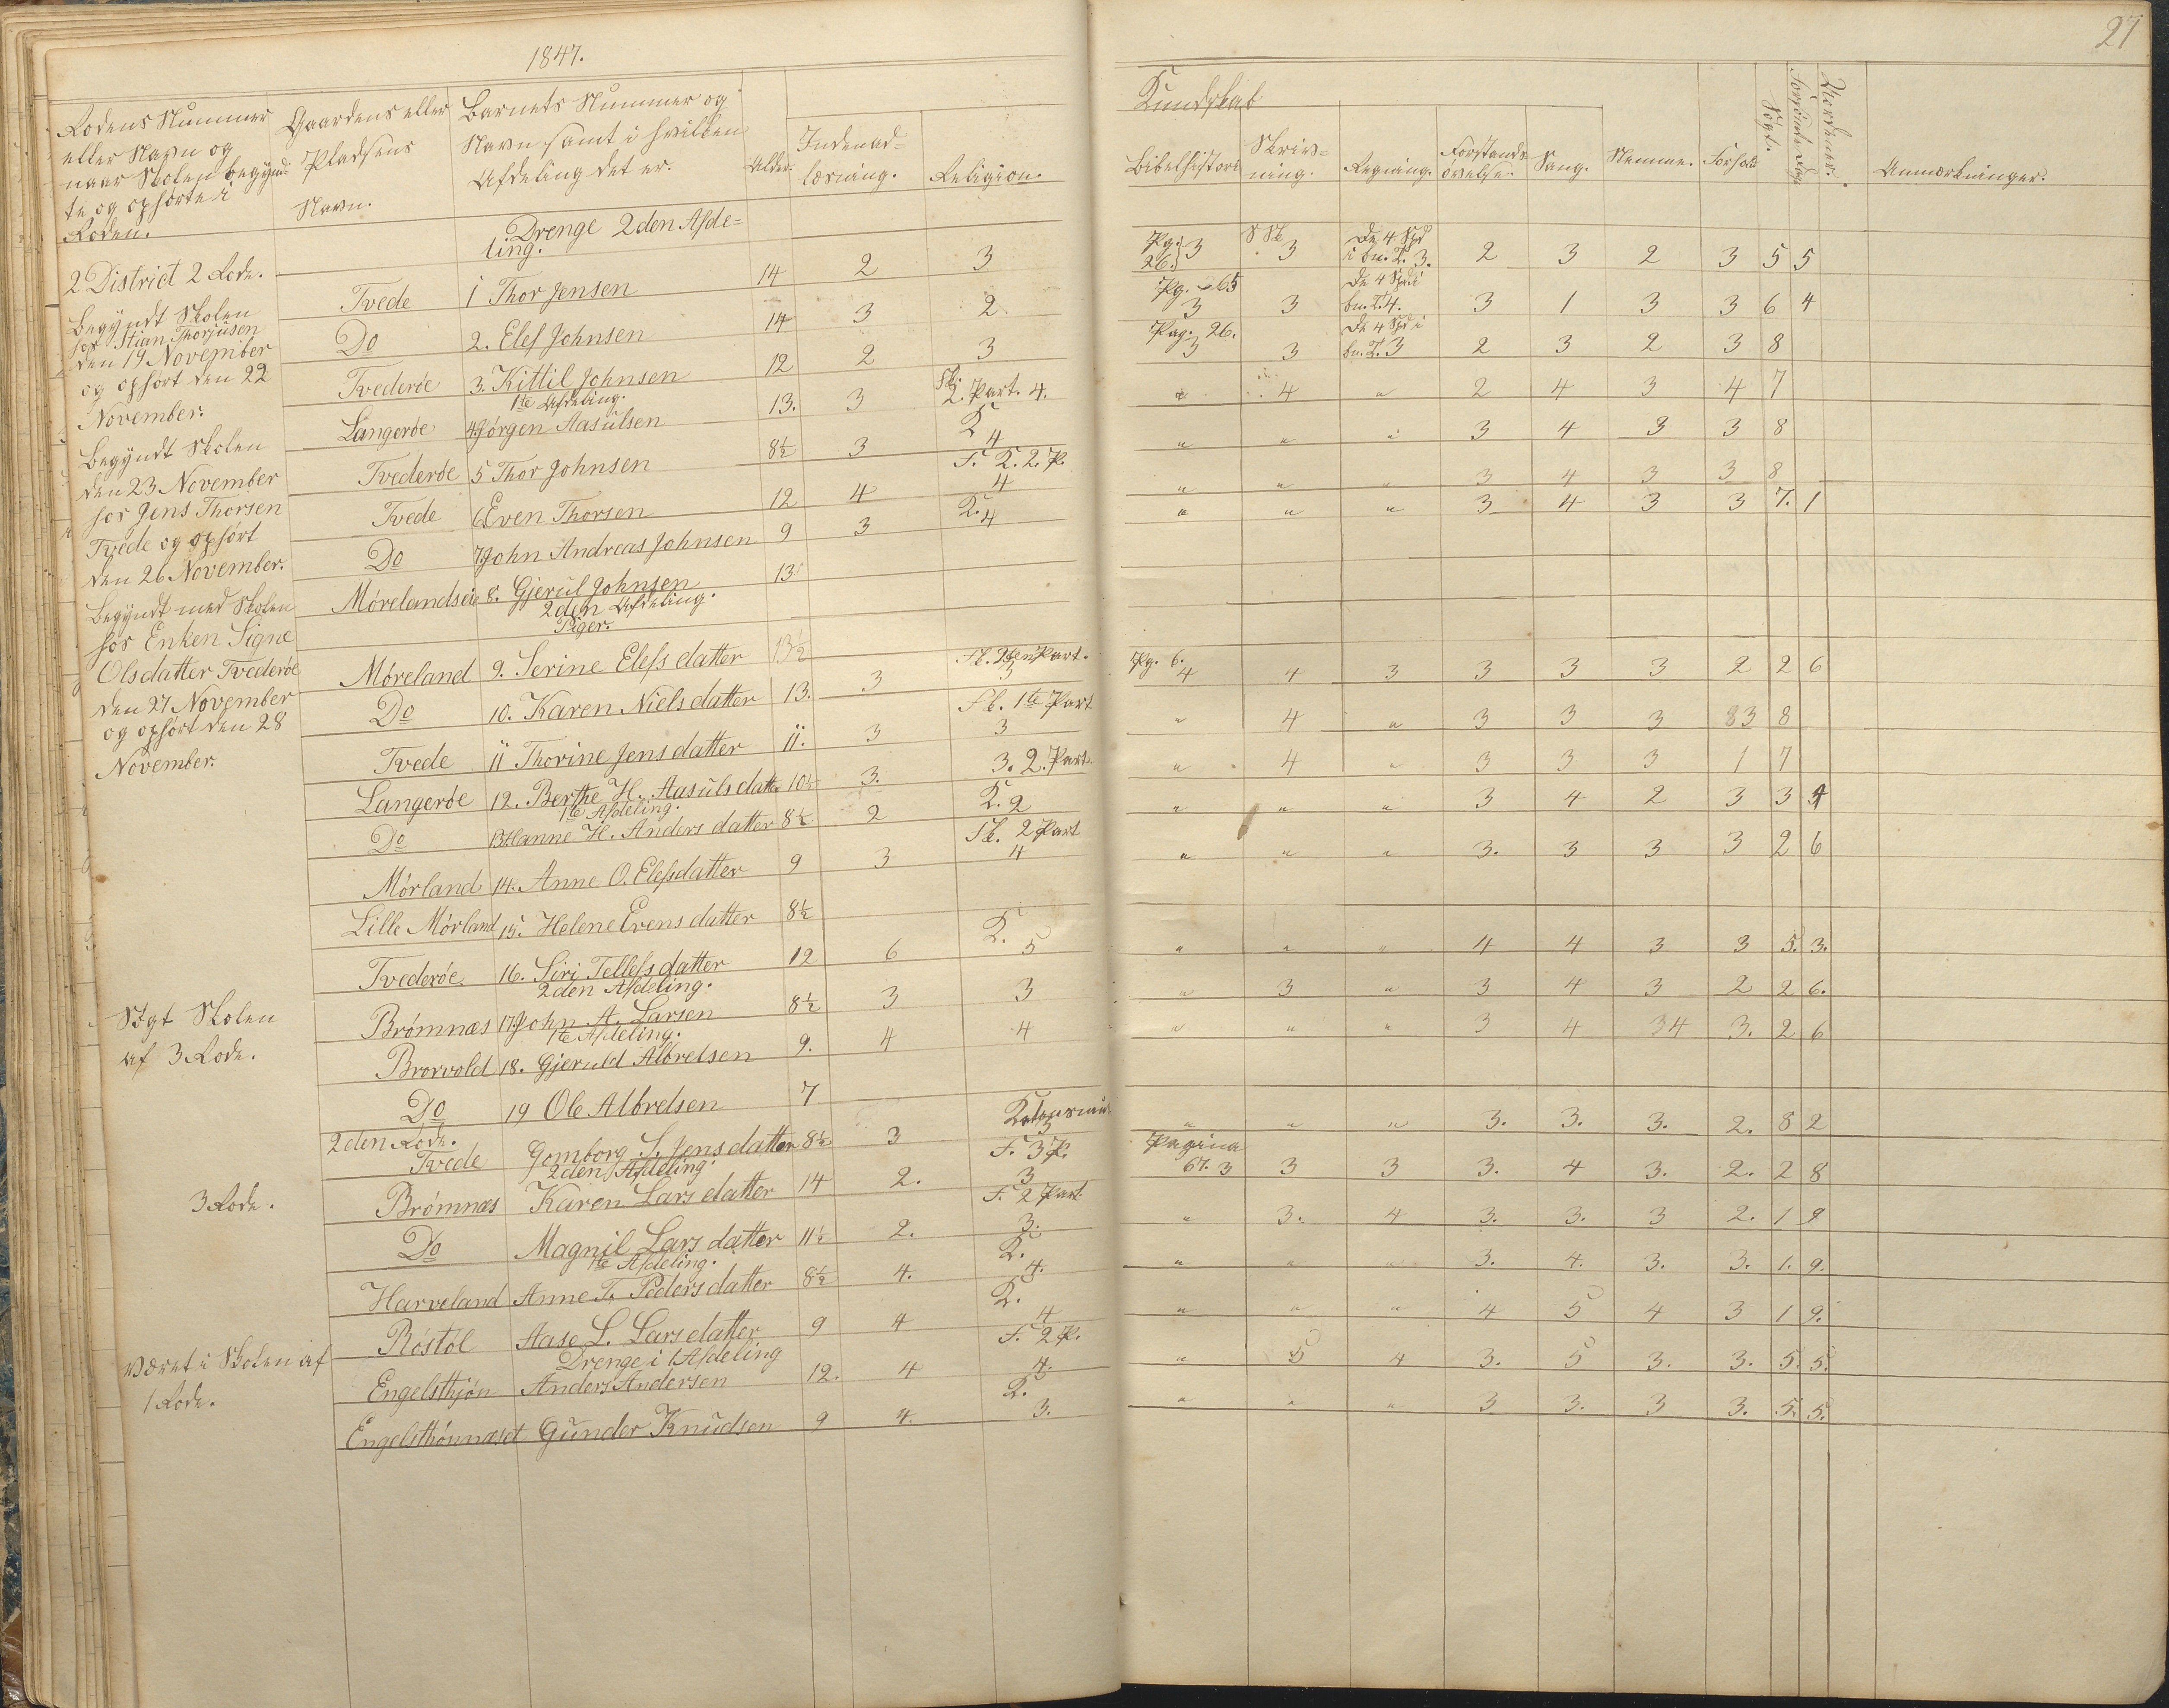 1847.
27
Rodens Nummer eller Navn og naar Skolen begyndte og ophørte i Roden.
Gaardens eller Pladsens Navn.
Barnets Nummer og Navn samt i hvilken Afdeling det er.
Alder.
Indenadlæsning.
Religion.
Kundskab
Bibelhistorie
Skrivning.
Regning.
Forstands øvelse.
Sang.
Nemme.
Forhold
Søgt.
Forsømte Dage
Anmærkninger.
2 District 2 Rode.
Begyndt Skolen
hos Stian Thorjüsen
den 19 November
og ophørt den 22
November.
Begyndt Skolen
den 23 November
hos Jens Thorsen
Tvede og ophørt
den 26 November.
Begyndt med Skolen
hos Enken Signe
Olsdatter Tvederöe
den 27 November
og ophørt den 28
November.
Drenge 2den Afdeling.
Tvede 1 Thor Jensen 14 2 3 Pg. 26. 3 3 De 4 Spd i bn. T. 3. 2 3 2 3 5 5
Do 2. Elef Johnsen 14 3 2 Pg. 65 3 3 De 4 Spd i bn. T. 4. 3 1 3 3 6 4
Tvederöe 3. Kittil Johnsen 12 2 3 Pag. 26. 3 3 De 4 Spd i bn. T. 3 2 3 2 3 8
1te Afdeling.
Langeröe 4 Jörgen Aasulsen 13. 3 2. Part. 4. " 4 " 2 4 3 4 7
Tvederöe 5 Thor Johnsen 8½ 3 K 4 " " " 3 4 3 3 8
Tvede 6 Even Thorsen 12 4 F. K. 2. P. 4 " " " 3 4 3 3 8
Do 7 John Andreas Johnsen 9 3 K. 4 " " " 3 4 3 3 7. 1
Mörelandseie 8. Gjerul Johnsen 13
2den Afdeling.
Piger.
Möreland 9. Serine Elefsdatter 13½ 3 2den Part. 3 Pg. 6. 4 4 3 3 3 3 2 2 6
Do 10. Karen Nielsdatter 13. 3 1te Part 3 " 4 " 3 3 3 3 8
Tvede 11 Thorine Jensdatter 11. 3 3. 2. Part. " 4 " 3 3 3 1 7
Langeröe 12. Berthe H. Aasulsdatter 10½ 3. K. 2 " " " 3 4 2 3 3 4
1te Afdeling.
Do 13 Hanne H. Andersdatter 8½ 2 2 Part
Mörland 14. Anne O. Elefsdatter 9 3 4 " " " 3. 3 3 3 2 6
Lille Mörland 15. Helene Evensdatter 8½
Tvederöe 16. Siri Tellefsdatter 12 6 K. 5 " " " 4 4 3 3 5. 3.
2den Afdeling.
Søgt Skolen
af 3 Rode.
Brömnæs 17 John A. Larsen 8½ 3 3 " 3 " 3 4 3 2 2 6.
1te Afdeling.
Brorvold 18. Gjeruld Albretsen 9. 4 4 " " " 3 4 34 3. 2 6
Do 19 Ole Albretsen 7
2den Rode.
Tvede Gomborg S. Jensdatter 8½ 3 3 " " " 3. 3. 3. 2. 8 2
2den Afdeling.
3 Rode.
Brömnæs Karen Larsdatter 14 2. F. 3 P. 3 Pagina 67. 3 3 3 3. 4 3. 2. 2 8
Do Magnil Larsdatter 11½ 2. F. 2 Part 3. " 3. 4 3. 3. 3 2. 1 9
1te Afdeling.
Harveland Anne T. Pedersdatter 8½ 4. K. 4. " " " 3. 4. 3. 3. 1. 9.
Röstöl Aase L. Larsdatter 9 4 K. 4 " " " 4 5 4 3 1 9.
Drenge i 1 Afdeling
Været i Skolen af
1 Rode.
Engelsthjön Anders Andersen 12. 4 F. 2 P. 4. " 5 4 3. 5 3. 3. 5. 5.
Engelsthönnæset Gunder Knudsen 9 4. K. 3. " " " 3 3. 3 3. 5. 5.